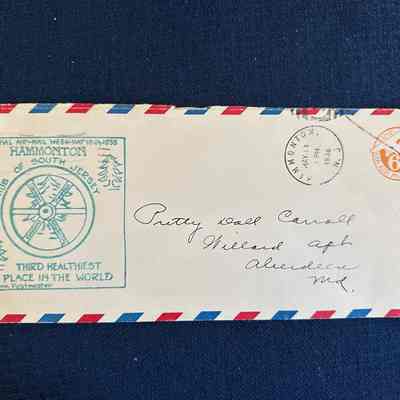 AIR-MAIL WEEK-MAY 15-21, 1938
HAMMONTON
OF SOUTH JERSEY
THIRD HEALTHIEST
PLACE IN THE WORLD
Postmaster
HAMMONTON,
N.J.
1938
6
Pretty Doll Carroll
Willard Apt
Aberdeen
Md.